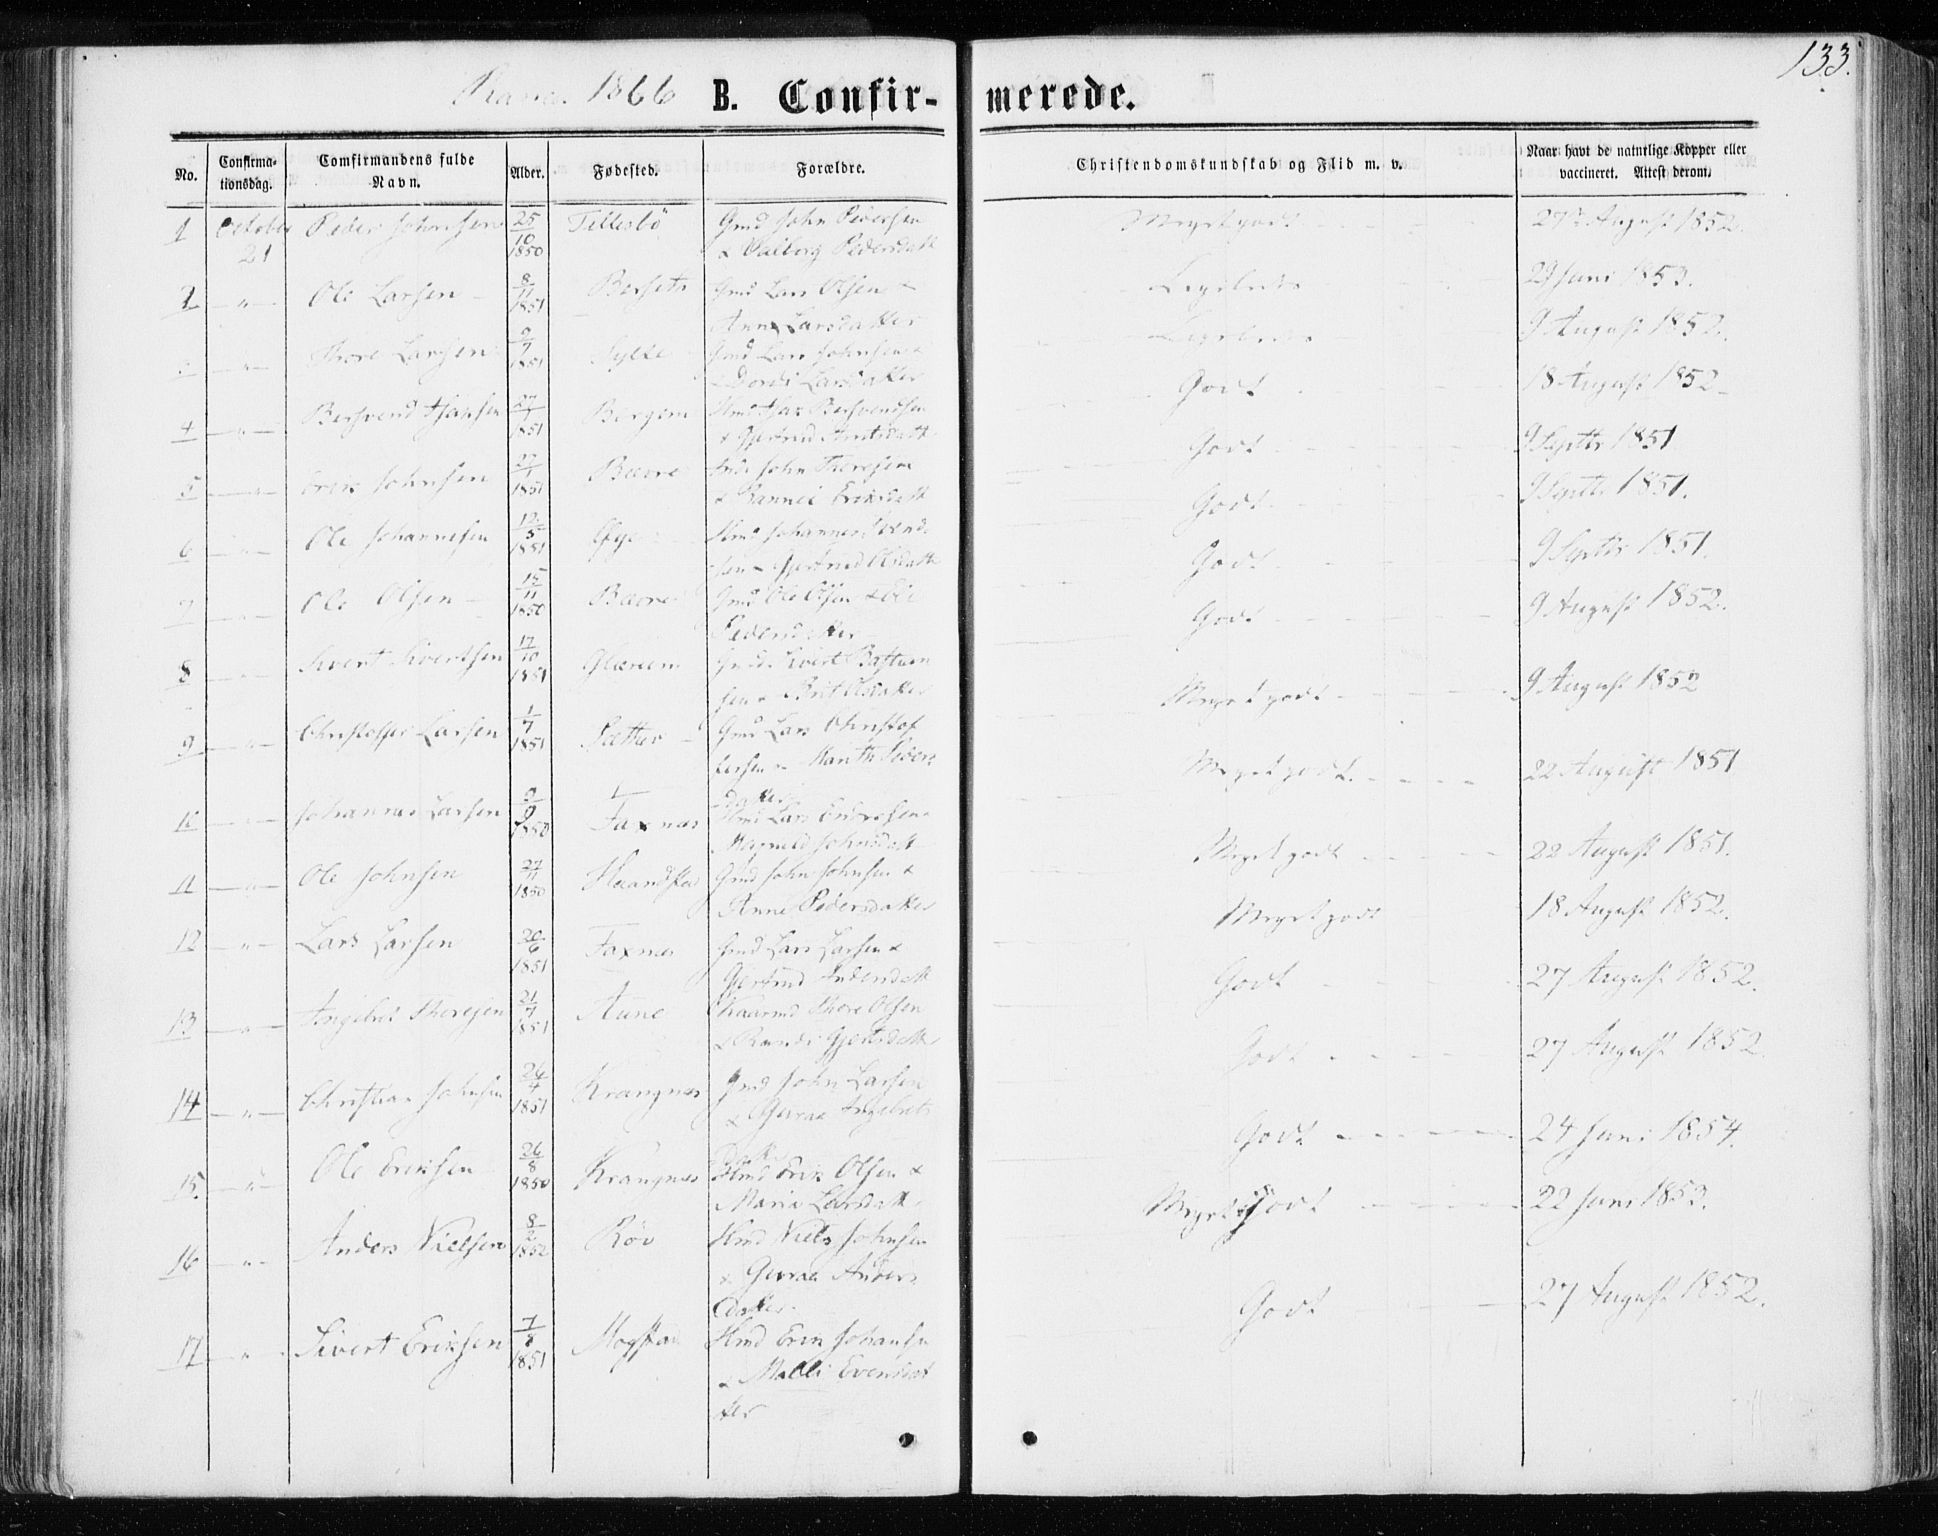 133.
Ranes 1866 B. Confir-merede.
No. Confirma-tionsdag. Comfirmandens fulde Navn. Alder. Fødested. Forældre. Christendomskundskab og Flid m. v. Naar havt de naturlige Kopper eller vaccineret. Attest derom.
1 October 21 Peder Johnsen 25/10 1850 Tellesbö Gmd John Pedersen
& Valborg Pedersdatt Meget godt 27de August 1852.
2 " Ole Larsen 8/11 1851 Berseth Gmd Lars Olsen &
Anne Larsdatter 29 Juni 1853.
" Thore Larsen 9/7 1851 Sylte Gmd Lars Johnsen
& Dordi Larsdatter 9 August 1852.
4 " Bersvend 27/1 1851 Bergem Bersvendsen
& Gjertrud Godt 18 August 1852
5 " Erik Johnsen 27/1 1851 Bævre John Thoresen
& Rannei Eriksdatt Godt 9 Septbr 1851
6 " Ole Johannesen 12/5 1851 Øye Hmd Johannes
sen & Gjertrud Olsdatt Godt 9 Septbr 1851.
7 " Ole Olsen 15/11 1850 Bævre Gmd Ole Olsen &
Pedersdatter Godt 9 Septbr 1851.
8 " Sivert Sivertsen 17/10 1851 Glærem Sivert
sen & Brit Olsdatter Godt 9 August 1852.
9 " Christoffer Larsen 1/7 1851 Sætter Gmd Lars Christof
fersen & Marith Sivers
datter Meget godt 9 August 1852
10 " Johannes Larsen 9/9 1850 Faxnes Hmd Lars Endresen &
Magnild Johnsdatt Meget godt 22 August 1851
11 " Ole Johnsen 27/11 1850 Haandstad Gmd John Johnsen &
Anne Pedersdatter Meget godt 22 August 1851.
12 " Lars Larsen 20/6 1851 Faxnes Gmd Lars Larsen &
Gjertrud Andersdatt Meget godt 18 August 1852.
13 " Ingebret Thoresen 21/7 1851 Aune Kaarmd Thore Olsen
& Randi Gjertsdatter Godt 27 August 1852.
14 " Christian Johnsen 24/4 1851 Krangnes Gmd John Larsen
& Guroe Ingebrets
Datt. Godt 27 August 1852.
15. " Ole Eriksen 26/8 1850 Krangnes Hmd Erik Olsen &
Marie Larsdatt. Godt 24 Juni 1854.
16 " Anders Nielsen 8/2 1852 Röv Hmd Niels Johnsen
& Guroe Anders
datter. Meget godt 22 Juni 1853.
17 " Sivert Eriksen 7/8 1851 Mogstad Hmd Erik Johansen
& Malli Evensdat
ter Godt 27 August 1852.